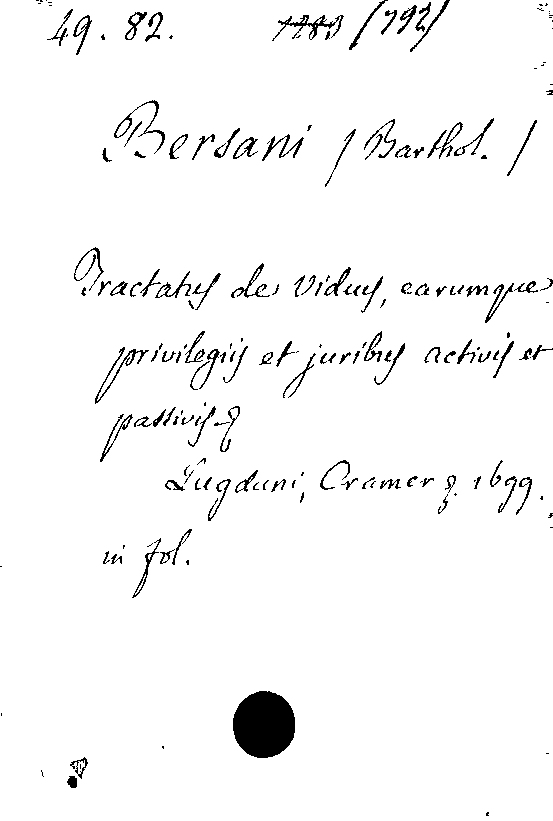 49. 82. 1283 (792)
Bersani (Barthol.)
Tractatus de Viduis, earumque
privilegiis et juribus activis et
passivis &
Lugduni, Cramer &. 1699.
in fol.